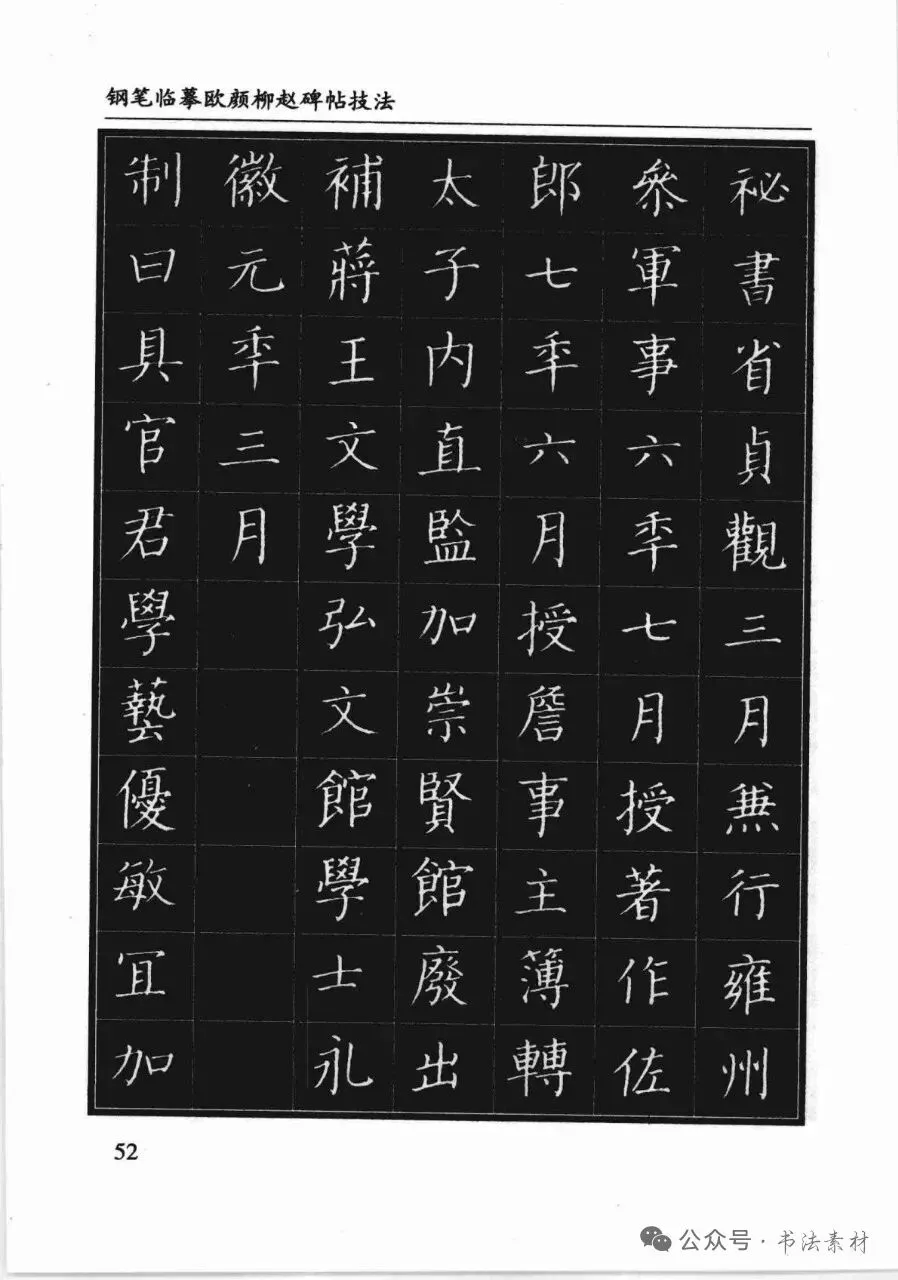 钢笔临摹欧颜柳赵碑帖技法
祕書省貞觀三月兼行雍州
叅軍事六秊七月授著作佐
郎七秊六月授詹事主薄轉
太子内直監加崇賢館廢出
補蔣王文學弘文館學士永
徽元秊三月
制曰具官君學藝優敏宜加
52
公众号·书法素材